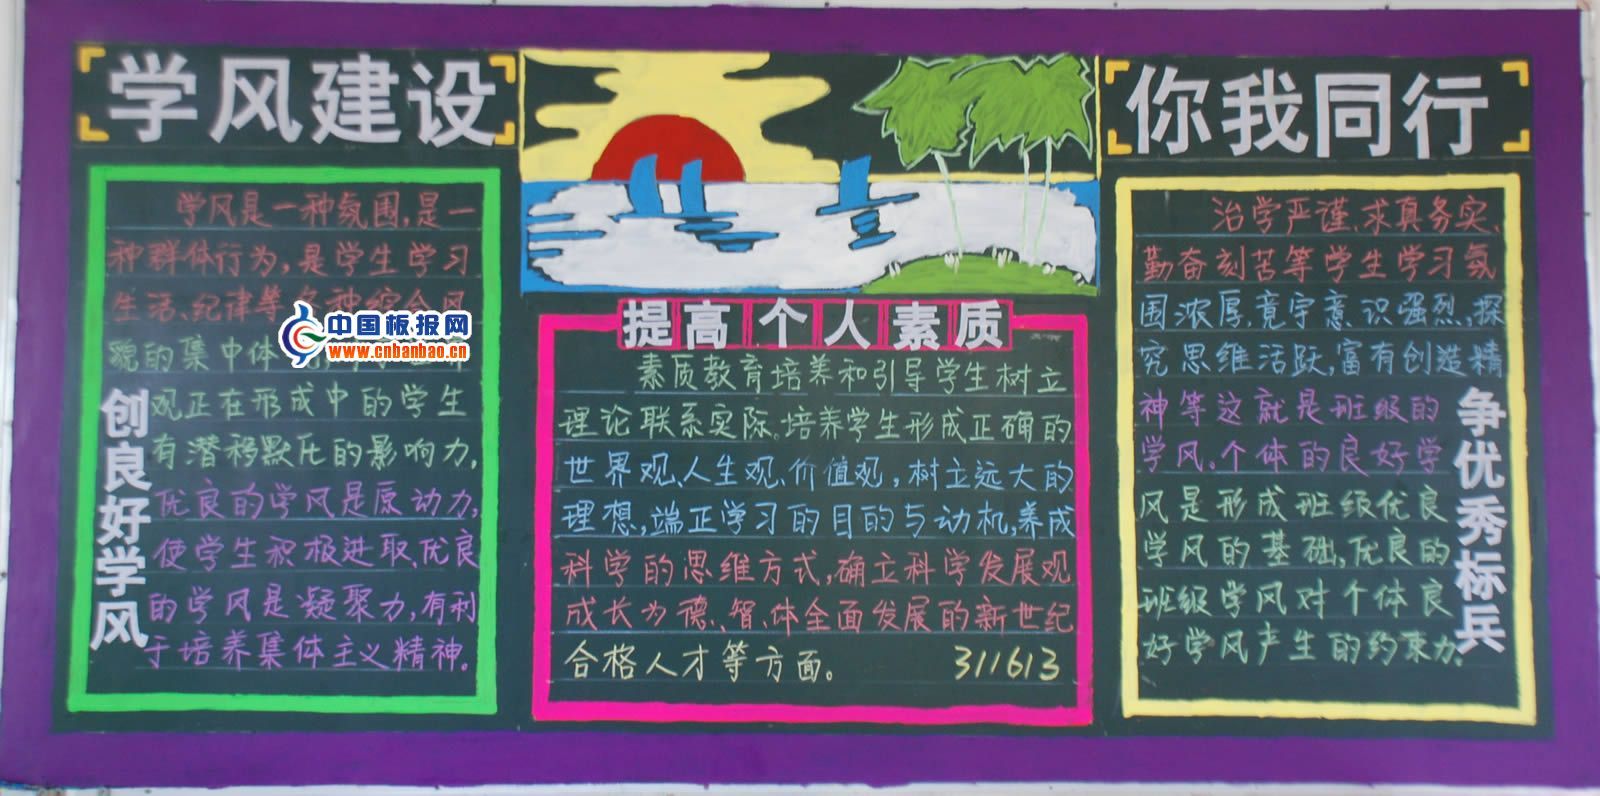 学风建设
学风是一种氛围,是一
种群体行为,是学生学习
生活、纪律等各种综合风
貌的集中体
观正在形成中的学生
有潜移默化的影响力,
优良的学风是原动力,
使学生积极进取,优良
的学风是凝聚力,有利
于培养集体主义精神。
创良好学风
中国板报网
www.cnbanbao.cn
提高个人素质
素质教育培养和引导学生树立
理论联系实际。培养学生形成正确的
世界观、人生观、价值观,树立远大的
理想,端正学习的目的与动机,养成
科学的思维方式,确立科学发展观
成长为德、智、体全面发展的新世纪
合格人才等方面。 311613
你我同行
治学严谨、求真务实、
勤奋刻苦等学生学习氛
围浓厚,竟宇意识强烈,探
究思维活跃,富有创造精
神等这就是班级的
学风。个体的良好学
风是形成班级优良
学风的基础,优良的
班级学风对个体良
好学风产生的约束力。
争优秀标兵